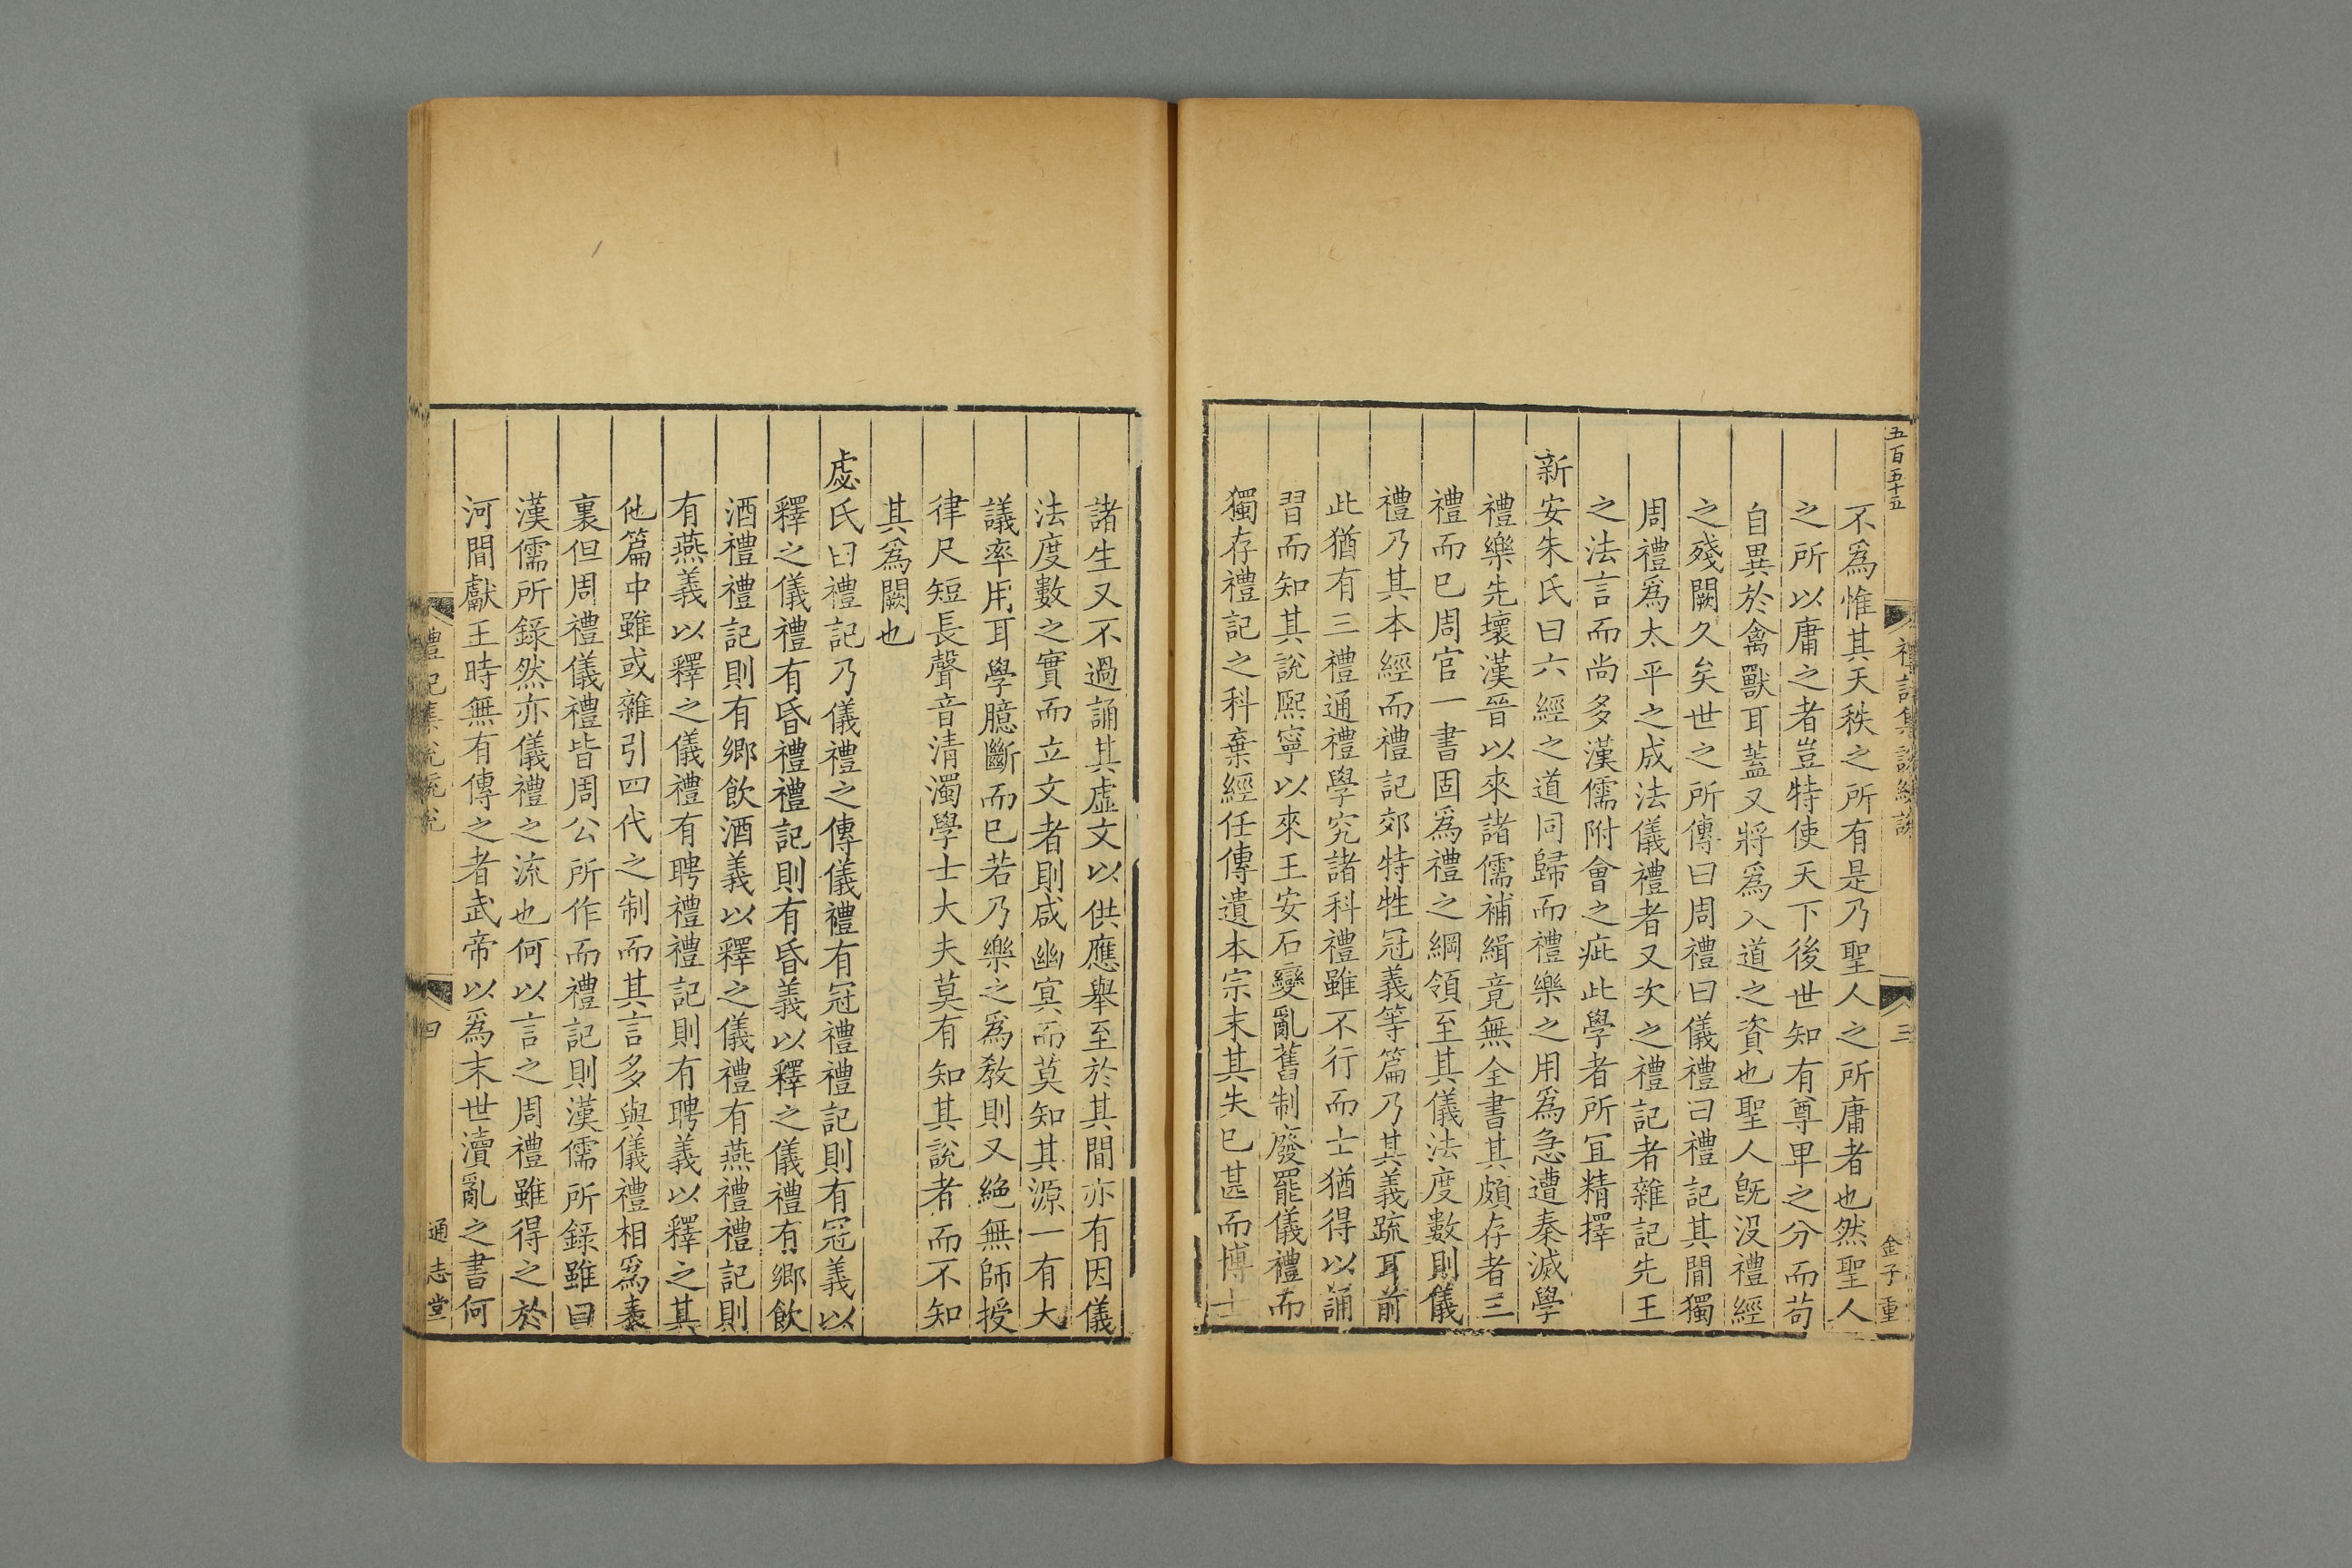 五百五十五
禮記集說統說
三
金子重
不爲惟其天秩之所有是乃聖人之所庸者也然聖人
之所以庸之者豈特使天下後世知有尊卑之分而苟
自異於禽獸耳葢又將爲入道之資也聖人旣没禮經
之殘闕久矣世之所傳曰周禮曰儀禮曰禮記其間獨
周禮爲太平之成法儀禮者又次之禮記者雜記先王
之法言而尚多漢儒附會之疵此學者所冝精擇
新安朱氏曰六經之道同歸而禮樂之用爲急遭秦滅學
禮樂先壞漢晉以來諸儒補緝竟無全書其頗存者三
禮而已周官一書固爲禮之綱領至其儀法度數則儀
禮乃其本經而禮記郊特牲冠義等篇乃其義疏耳前
此猶有三禮通禮學究諸科禮雖不行而士猶得以誦
習而知其說熙寧以來王安石變亂舊制廢罷儀禮而
獨存禮記之科棄經任傳遺本宗末其失已甚而博士
諸生又不過誦其虚文以供應舉至於其間亦有因儀
法度數之實而立文者則咸幽冥而莫知其源一有大
議率用耳學臆斷而已若乃樂之爲教則又絶無師授
律尺短長聲音清濁學士大夫莫有知其說者而不知
其爲闕也
虙氏曰禮記乃儀禮之傳儀禮有冠禮禮記則有冠義以
釋之儀禮有昏禮禮記則有昏義以釋之儀禮有鄉飲
酒禮禮記則有鄉飲酒義以釋之儀禮有燕禮禮記則
有燕義以釋之儀禮有聘禮禮記則有聘義以釋之其
他篇中雖或雜引四代之制而其言多與儀禮相爲表
裏但周禮儀禮皆周公所作而禮記則漢儒所錄雖曰
漢儒所錄然亦儀禮之流也何以言之周禮雖得之於
河間獻王時無有傳之者武帝以爲末世瀆亂之書何
禮記集說統說
四
通志堂